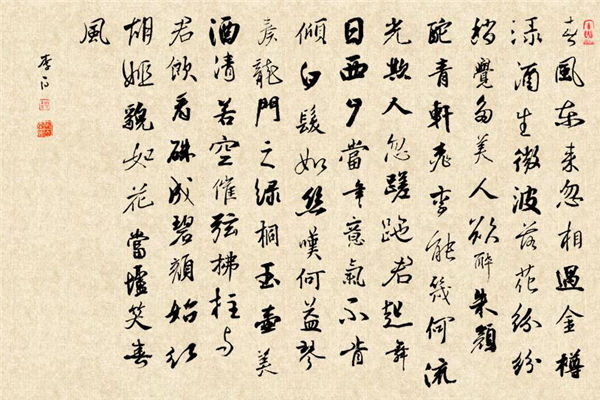 春風東來忽相過金樽
淥酒生微波落花紛紛
稍覺多美人欲醉朱顏
酡青軒桃李能幾何流
光欺人忽蹉跎君起舞
日西夕當年意氣不肯
傾白髮如絲嘆何益琴
奏龍門之綠桐玉壺美
酒清若空催弦拂柱與
君飲看硃成碧顏始紅
胡姬貌如花當壚笑春
風
李白